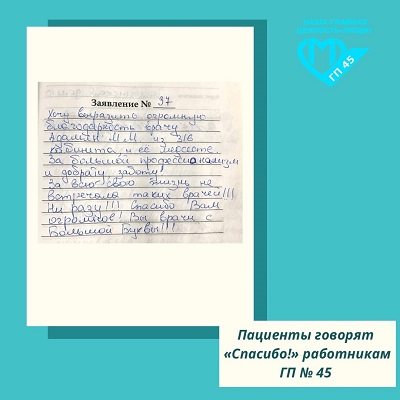 НАША ГЛАВНАЯ
ЦЕННОСТЬ - ЛЮДИ
ГП 45
Заявление № 37
Хочу выразить огромную
благодарность врачу
М.М из 216
кабинета и её
За большой профессионализм
и доброту, заботу!
За всю свою жизнь не
встречала таких врачей!!!
Ни разу!!! Спасибо Вам
огромное! Вы врачи с
Большой Буквы!!!
Пациенты говорят
«Спасибо!» работникам
ГП № 45